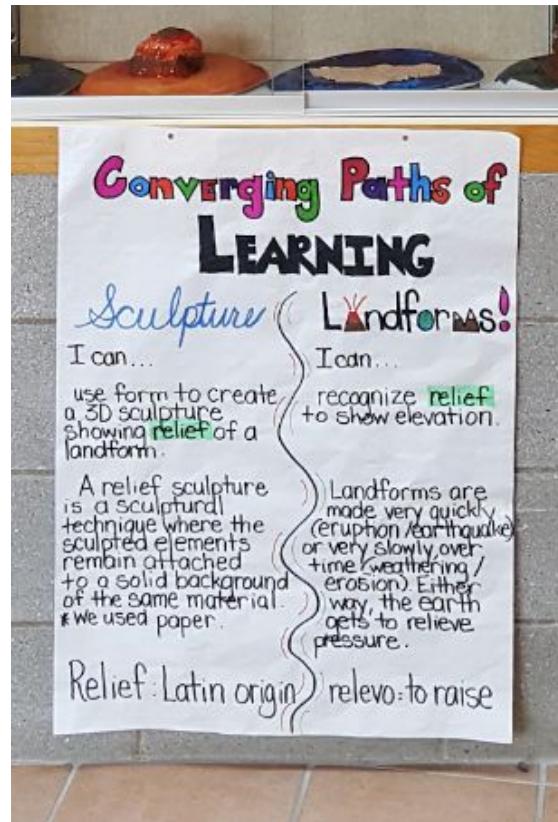 Converging Paths of
LEARNING
Sculpture
I can...
use form to create
a 3D sculpture
showing relief of a
landform.
A relief sculpture
is a sculptural
technique where the
sculpted elements
remain attached
to a solid background
of the same material.
*We used paper.
Landforms!
I can...
recognize relief
to show elevation.
Landforms are
made very quickly
(eruption/earthquake)
or very slowly over
time (weathering/
erosion). Either
way, the earth
gets to relieve
pressure.
Relief: Latin origin
relevo: to raise